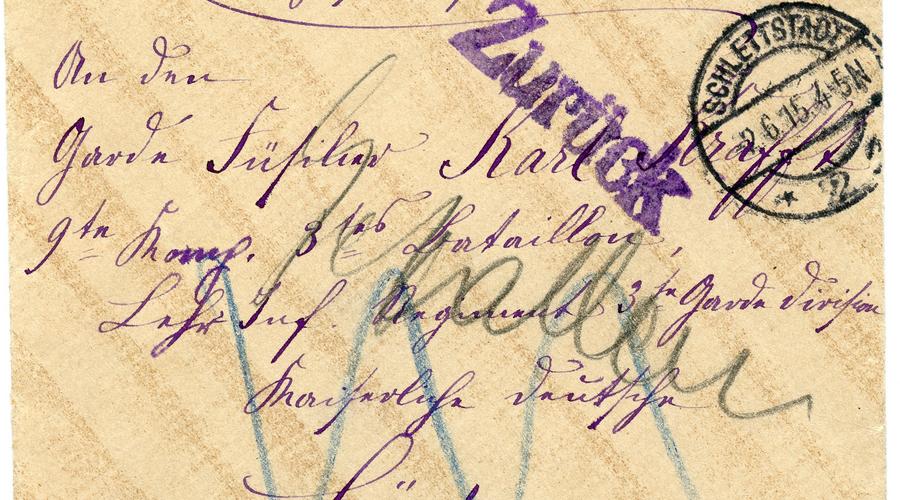 Zurück
SCHLETTSTADT
2.6.15.4-5N
An den
Garde Füsilier Karl Krafft
9te Komp. 3tes Bataillon,
Lehr Inf. Regiment 3te Garde Division
Kaiserliche deutsche